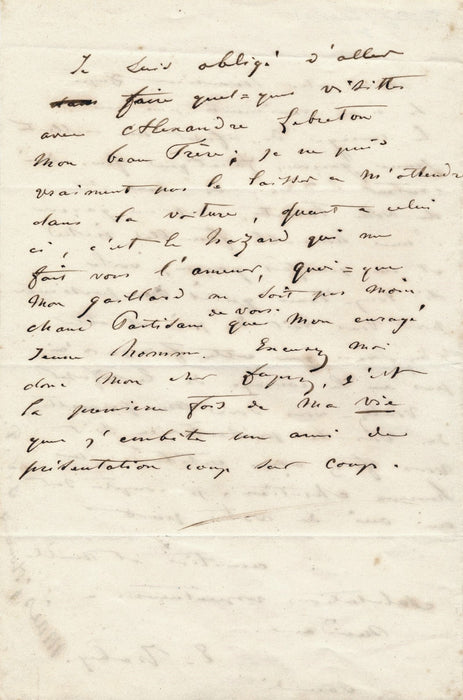 Je suis obligé d'aller
faire quel=ques visittes
avec Alexandre Lebreton
Mon beau Frère; je ne puis
vraiment pas le laisser a m'attendre
dans la voiture, quant a celui
ci, c'est le hazard qui me
fait vous l'amener, quoi=que
Mon gaillard ne soit pas moin
chaud Partisan de vous que Mon enragé
Jeune homme. Excusez moi
donc Mon cher c'est
la premiere fois de ma vie
que j'embête un ami de
présentation coup sur coup.